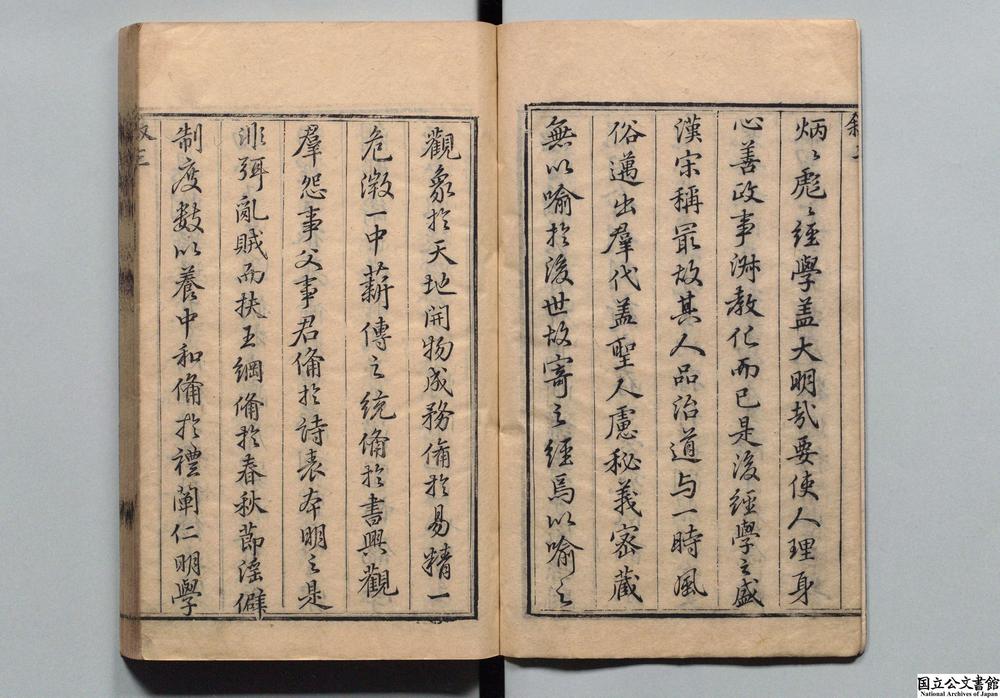 炳〻彪〻經學盖大明哉要使人理身
心善政事淋教化而已是後經學之盛
漢宋稱最故其人品治道与一時風
俗邁出羣代盖聖人慮秘義密蔵
無以喻於後世故寄之經焉以喻之
觀象於天地開物成務俻於易精一
危微一中薪傳之統俻於書興觀
羣怨事父事君俻於詩表夲明之是
非弭亂賊而扶王綱俻於春秋節淫僻
制度数以養中和俻於禮闡仁明學
叙三
国立公文書館
National Archives of Japan